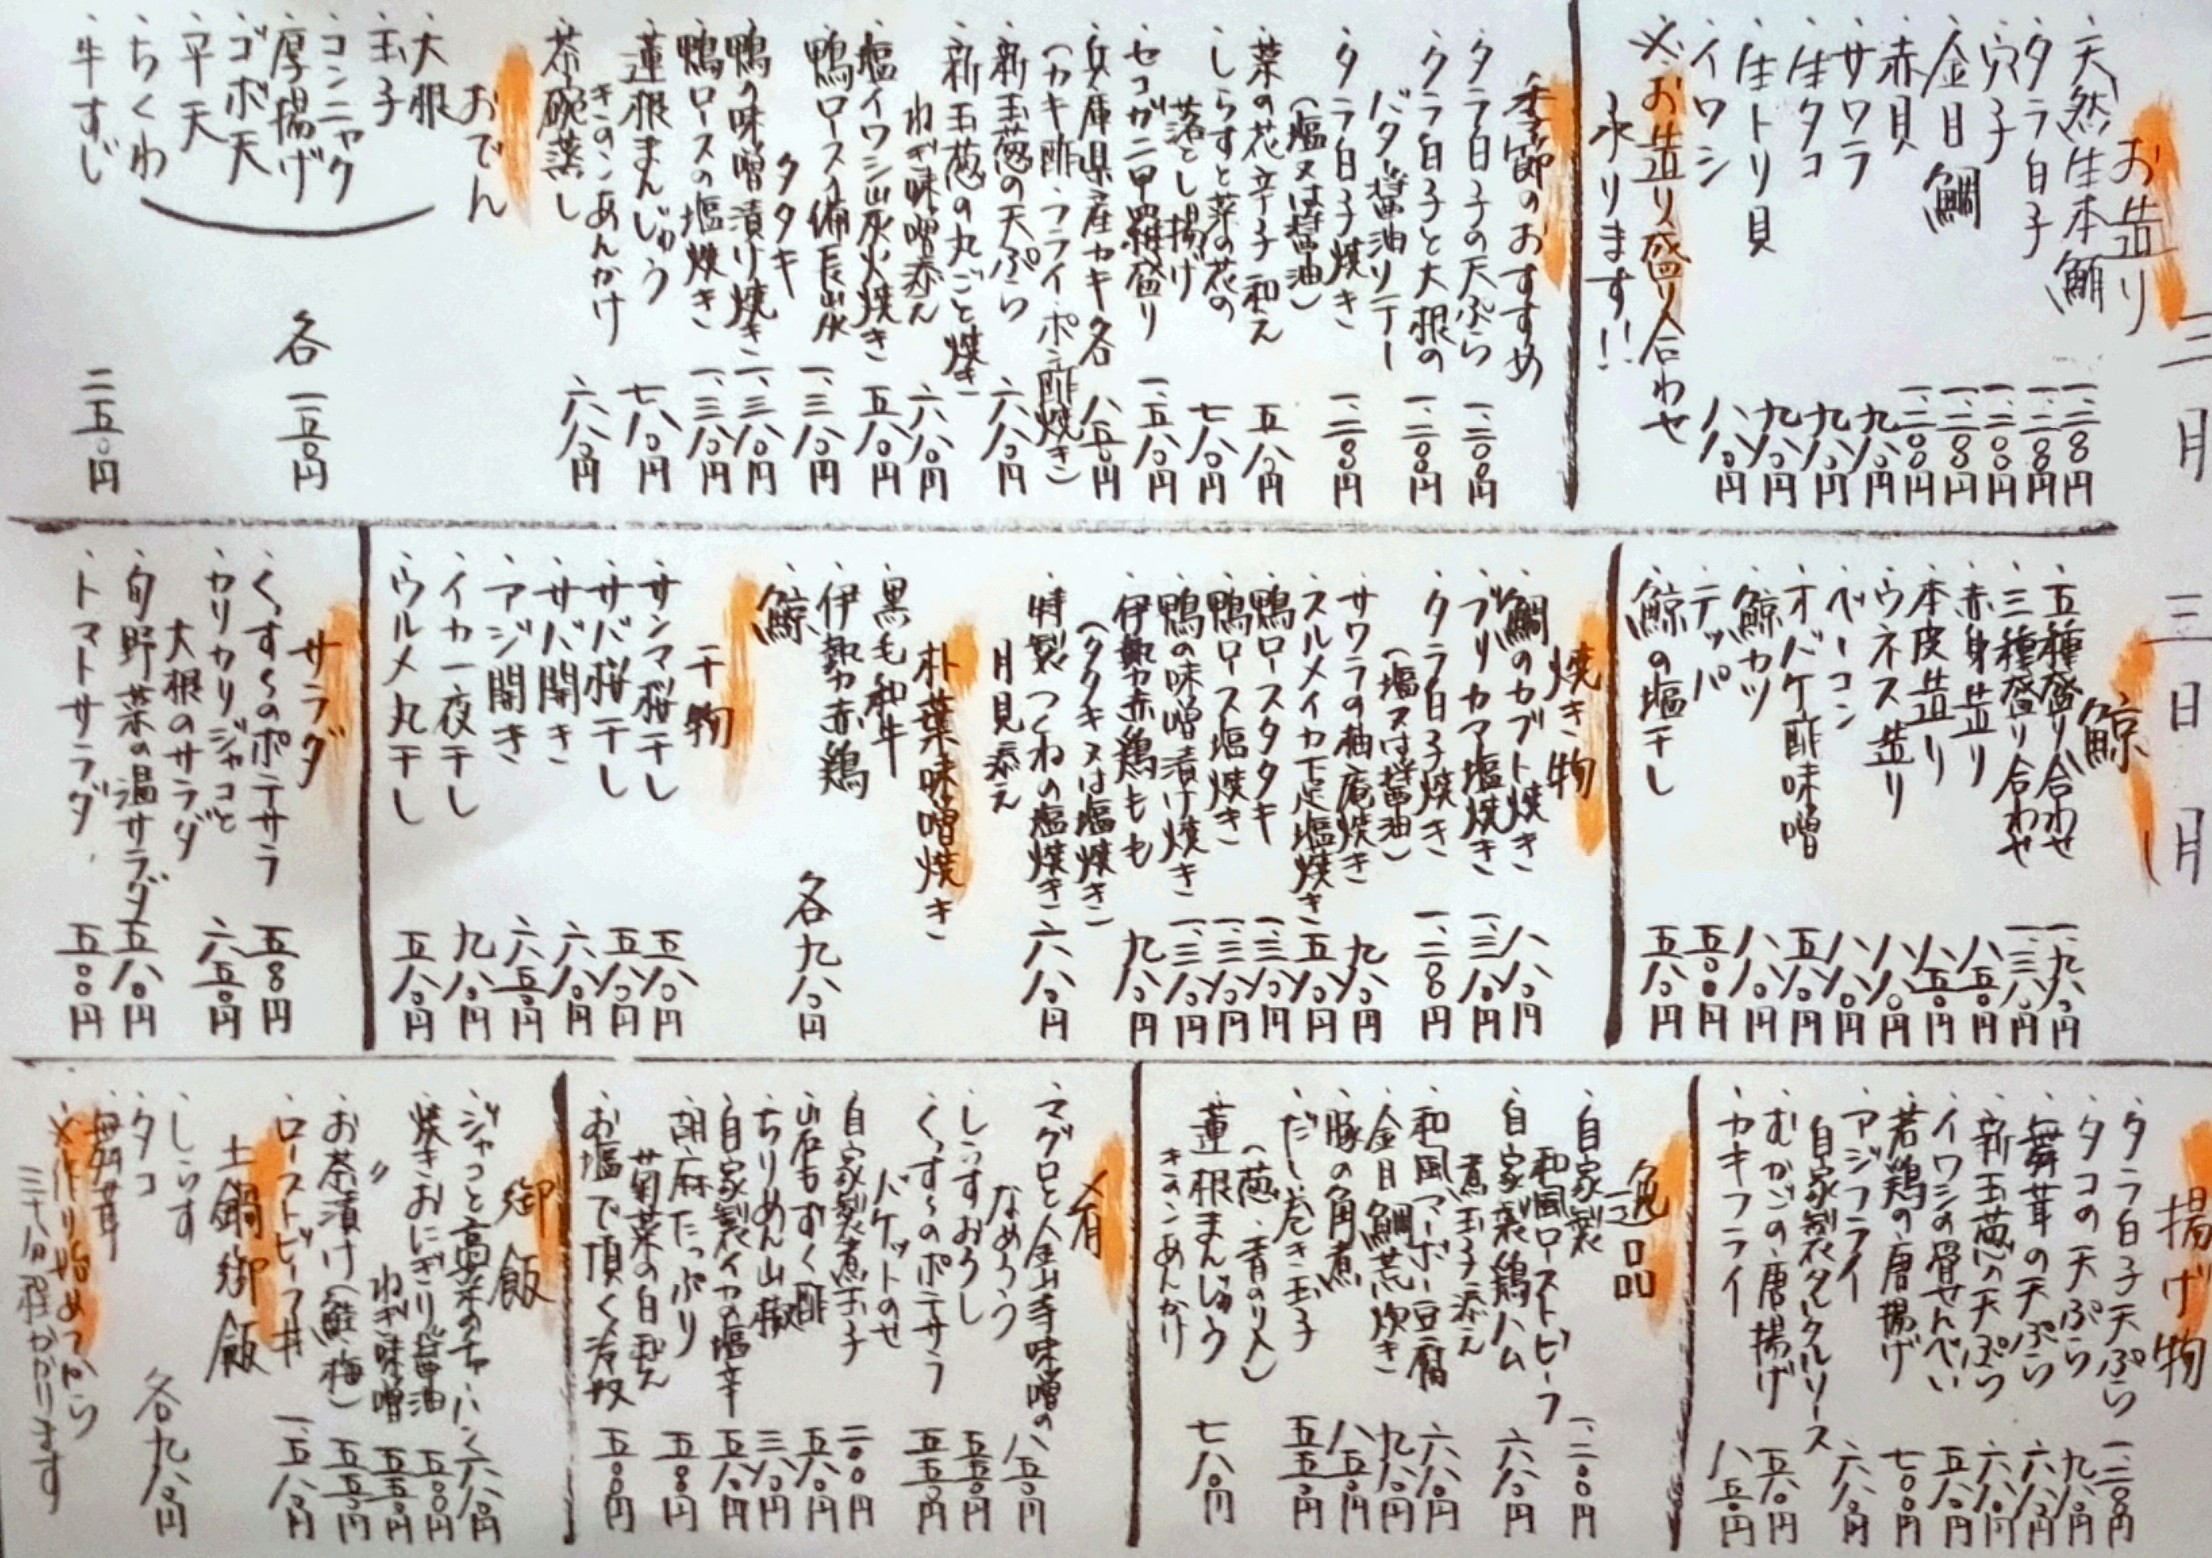 三月三日月
お造り
・天然生本鮪 一、二〇〇円
・タラ白子 一、二〇〇円
・穴子 一、二〇〇円
・金目鯛 一、二〇〇円
・赤貝 一、二〇〇円
・サワラ 九八〇円
・生タコ 九八〇円
・生トリ貝 九八〇円
・イワシ 八八〇円
※お造り盛り合わせ
承ります!!
季節のおすすめ
・タラ白子の天ぷら 一、二〇〇円
・タラ白子と大根の
バター醤油ソテー 一、二〇〇円
・タラ白子焼き
(塩又は醤油) 一、二〇〇円
・菜の花辛子和え 五八〇円
・しらすと菜の花の
落とし揚げ 七八〇円
・セコガニ甲羅盛り 一、五八〇円
・兵庫県産カキ各 八五〇円
(カキ酢・フライ・ポン酢焼き)
・新玉葱の天ぷら 六八〇円
・新玉葱の丸ごと焼き
ねぎ味噌添え 六八〇円
・塩イワシ炭火焼き 五八〇円
・鴨ロース備長炭
タタキ 一、三八〇円
・鴨の味噌漬け焼き 一、三八〇円
・鴨ロースの塩焼き 一、三八〇円
・蓮根まんじゅう
きのこあんかけ 七八〇円
・茶碗蒸し 六八〇円
おでん
・大根
・玉子
・コンニャク
・厚揚げ
・ゴボ天
・平天
・ちくわ
各一五〇円
・牛すじ 二五〇円
鯨
・五種盛り合わせ 一、九八〇円
・三種盛り合わせ 一、三八〇円
・赤身造り 八五〇円
・本皮造り 八五〇円
・ウネス造り 八八〇円
・ベーコン 八八〇円
・オバケ酢味噌 五八〇円
・鯨カツ 八八〇円
・テッパ 五〇〇円
・鯨の塩干し 五八〇円
焼き物
・鯛のカブト焼き 八八〇円
・ブリカマ塩焼き 一、三八〇円
・タラ白子焼き
(塩又は醤油) 一、二〇〇円
・サワラの柚庵焼き 九八〇円
・スルメイカ下足塩焼き 五八〇円
・鴨ロースタタキ 一、三八〇円
・鴨ロース塩焼き 一、三八〇円
・鴨の味噌漬け焼き 一、三八〇円
・伊勢赤鶏もも 九八〇円
(タタキ又は塩焼き)
・特製つくねの塩焼き 六八〇円
月見添え
朴葉味噌焼き
・黒毛和牛
・伊勢赤鶏
・鯨
各九八〇円
干物
・サンマ桜干し 五八〇円
・サバ桜干し 五八〇円
・サバ開き 六八〇円
・アジ開き 六五〇円
・イカ一夜干し 九八〇円
・ウルメ丸干し 五八〇円
サラダ
・くすくすのポテサラ 五五〇円
・カリカリジャコと
大根のサラダ 六五〇円
・旬野菜の温サラダ 五八〇円
・トマトサラダ 五〇〇円
揚げ物
・タラ白子天ぷら 一、二〇〇円
・タコの天ぷら 九八〇円
・舞茸の天ぷら 六八〇円
・新玉葱の天ぷら 六八〇円
・イワシの骨せんべい 五八〇円
・若鶏の唐揚げ 七〇〇円
・アジフライ
自家製タルタルソース 六八〇円
・むかごの唐揚げ 五八〇円
・カキフライ 八五〇円
逸品
・自家製
和風ローストビーフ 一、二〇〇円
・自家製鶏ハム
煮玉子添え 六八〇円
・和風マーボー豆腐 六八〇円
・金目鯛荒炊き 九八〇円
・豚の角煮 八五〇円
・だし巻き玉子 五五〇円
(葱・青のり入)
・蓮根まんじゅう
きのこあんかけ 七八〇円
肴
・マグロと金山寺味噌の
なめろう 八五〇円
・しらすおろし 五五〇円
・くすくすのポテサラ
バケットのせ 五五〇円
・自家製煮玉子 二〇〇円
・岩もずく酢 五八〇円
・ちりめん山椒 三八〇円
・自家製イカの塩辛 五八〇円
・胡麻たっぷり
菊菜の白和え 五五〇円
・お塩で頂く冷奴 五〇〇円
御飯
・ジャコと高菜のチャーハン 六八〇円
・焼きおにぎり醤油 五〇〇円
・〃 ねぎ味噌 五五〇円
・お茶漬け(鮭・梅) 五五〇円
・ローストビーフ丼 一、五八〇円
土鍋御飯
・しらす
・タコ
・舞茸
各九八〇円
※作り始めてから
三十分程かかります